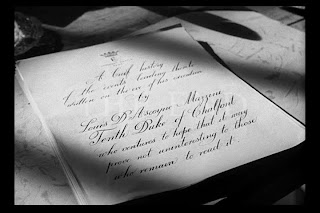 A brief history
of the events leading thereto
written on the eve of his execution
by
Louis D'Ascoyne Mazzini
Tenth Duke of Chalfont
who ventures to hope that it may
prove not uninteresting to those
who remain to read it.